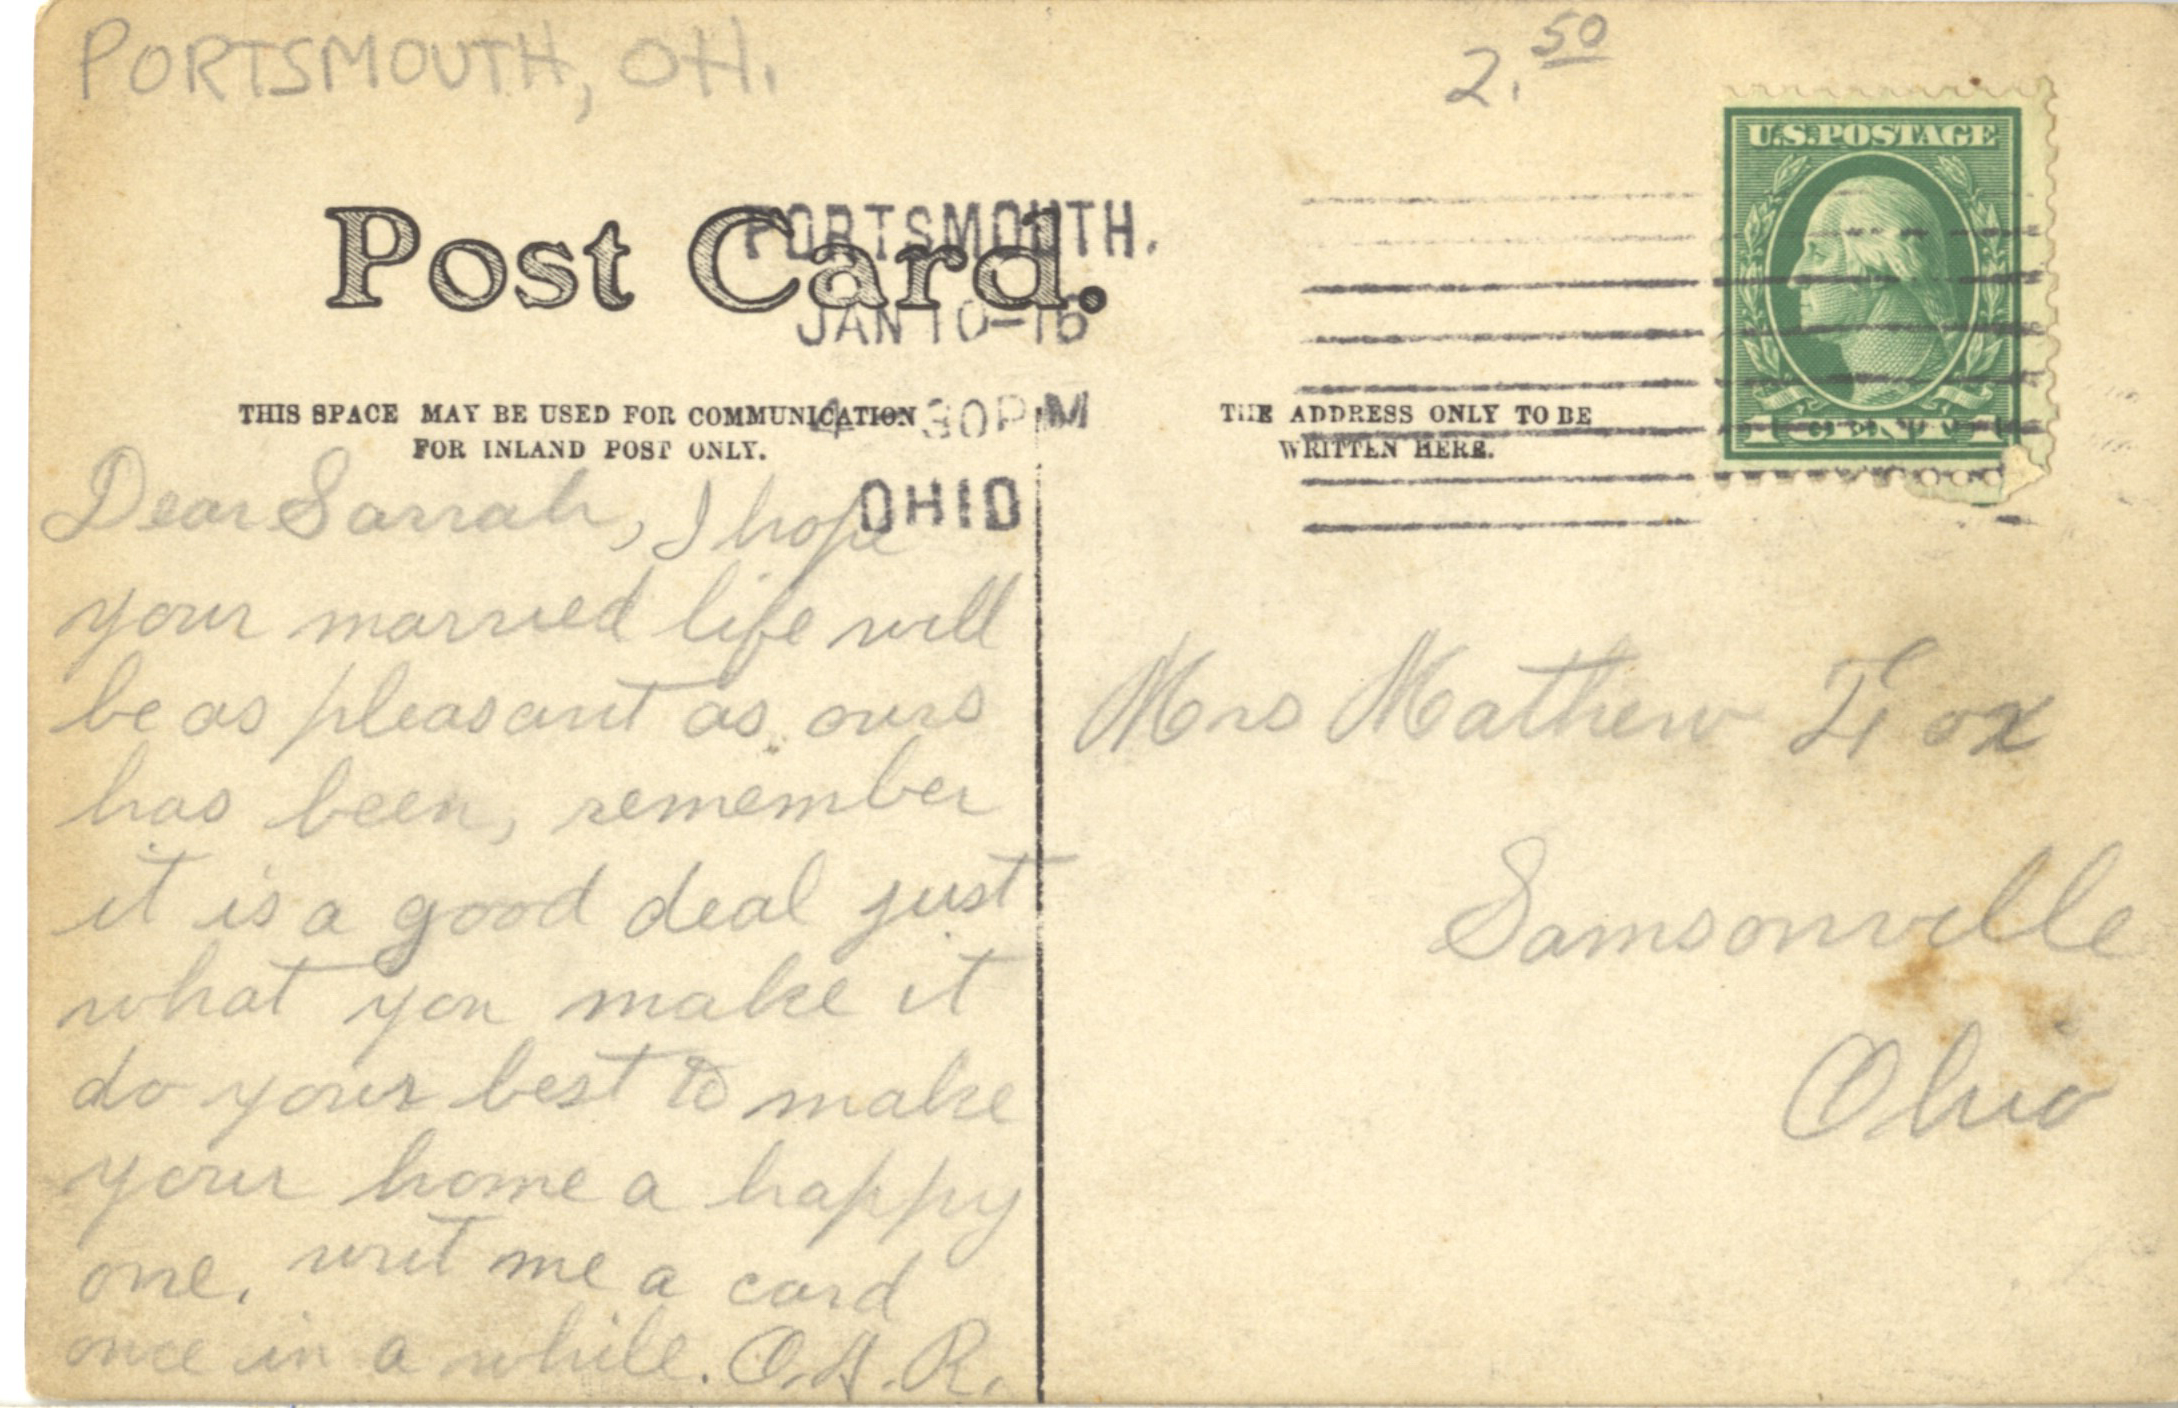 PORTSMOUTH, OH.
2.50
U.S.POSTAGE
Post Card.
PORTSMOUTH.
JAN 10-16
4 30PM
OHIO
1 CENT 1
THIS SPACE MAY BE USED FOR COMMUNICATION
FOR INLAND POST ONLY.
THE ADDRESS ONLY TO BE
WRITTEN HERE.
Dear Sarrah, I hope
your married life will
be as pleasant as ours
has been, remember
it is a good deal just
what you make it
do your best to make
your home a happy
one. writ me a card
once in a while. O.H.R.
Mrs Mathew Fox
Samsonville
Ohio